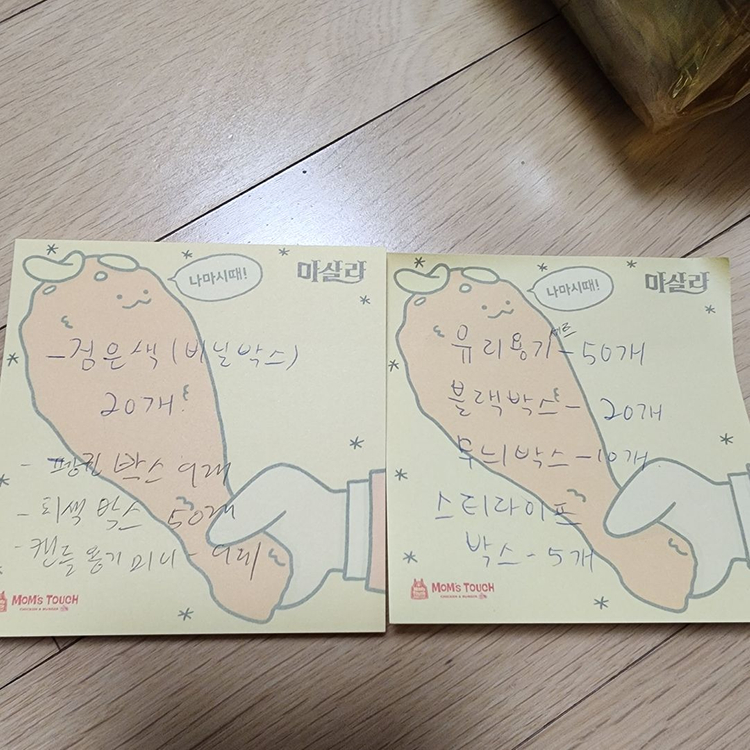 나마시때!
마살라
-검은색(비닐박스)
20개
박스 9개
- 회색 박스 50개
- 캔들 용기 미니 - 9개
MOM's TOUCH
CHICKEN & BURGER
나마시때!
마살라
유리용기세트 - 50개
블랙박스 - 20개
무늬박스 - 10개
스티라이프
박스 - 5개
MOM's TOUCH
CHICKEN & BURGER